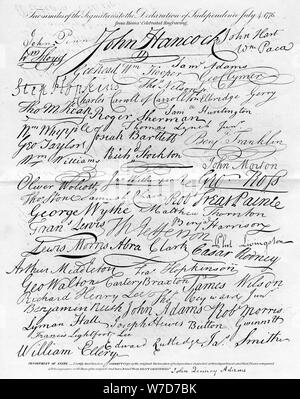 Facsimiles of the Signatures to the Declaration of Independence July 4. 1776.
John Penn John Hancock John Hart
Wm Floyd Wm Paca
Geo Read Wm Hooper Sam Adams Geo Clymer
Step Hopkins Tho Nelson jr
Charles Carroll of Carrollton Elbridge Gerry
Tho M:Kean Roger Sherman Sam Huntington
Wm Whipple Thomas Lynch Junr
Geo Taylor Josiah Bartlett Benj Franklin
Wm Williams Richd Stockton
John Morton
Oliver Wolcott Jno Witherspoon Geo Ross
Thos Stone Samuel Chase Robt Treat Paine
George Wythe Matthew Thornton
Frans Lewis Th Jefferson Benj Harrison
Lewis Morris Abra Clark Phil Livingston
Cæsar Rodney
Arthur Middleton Fras Hopkinson
Geo Walton Carter Braxton James Wilson
Richard Henry Lee Thos Heyward Junr
Benjamin Rush John Adams Robt Morris
Lyman Hall Joseph Hewes Button Gwinnett
Francis Lightfoot Lee
William Ellery Edward Rutledge Jas Smith
John Quincy Adams
W7D7BK